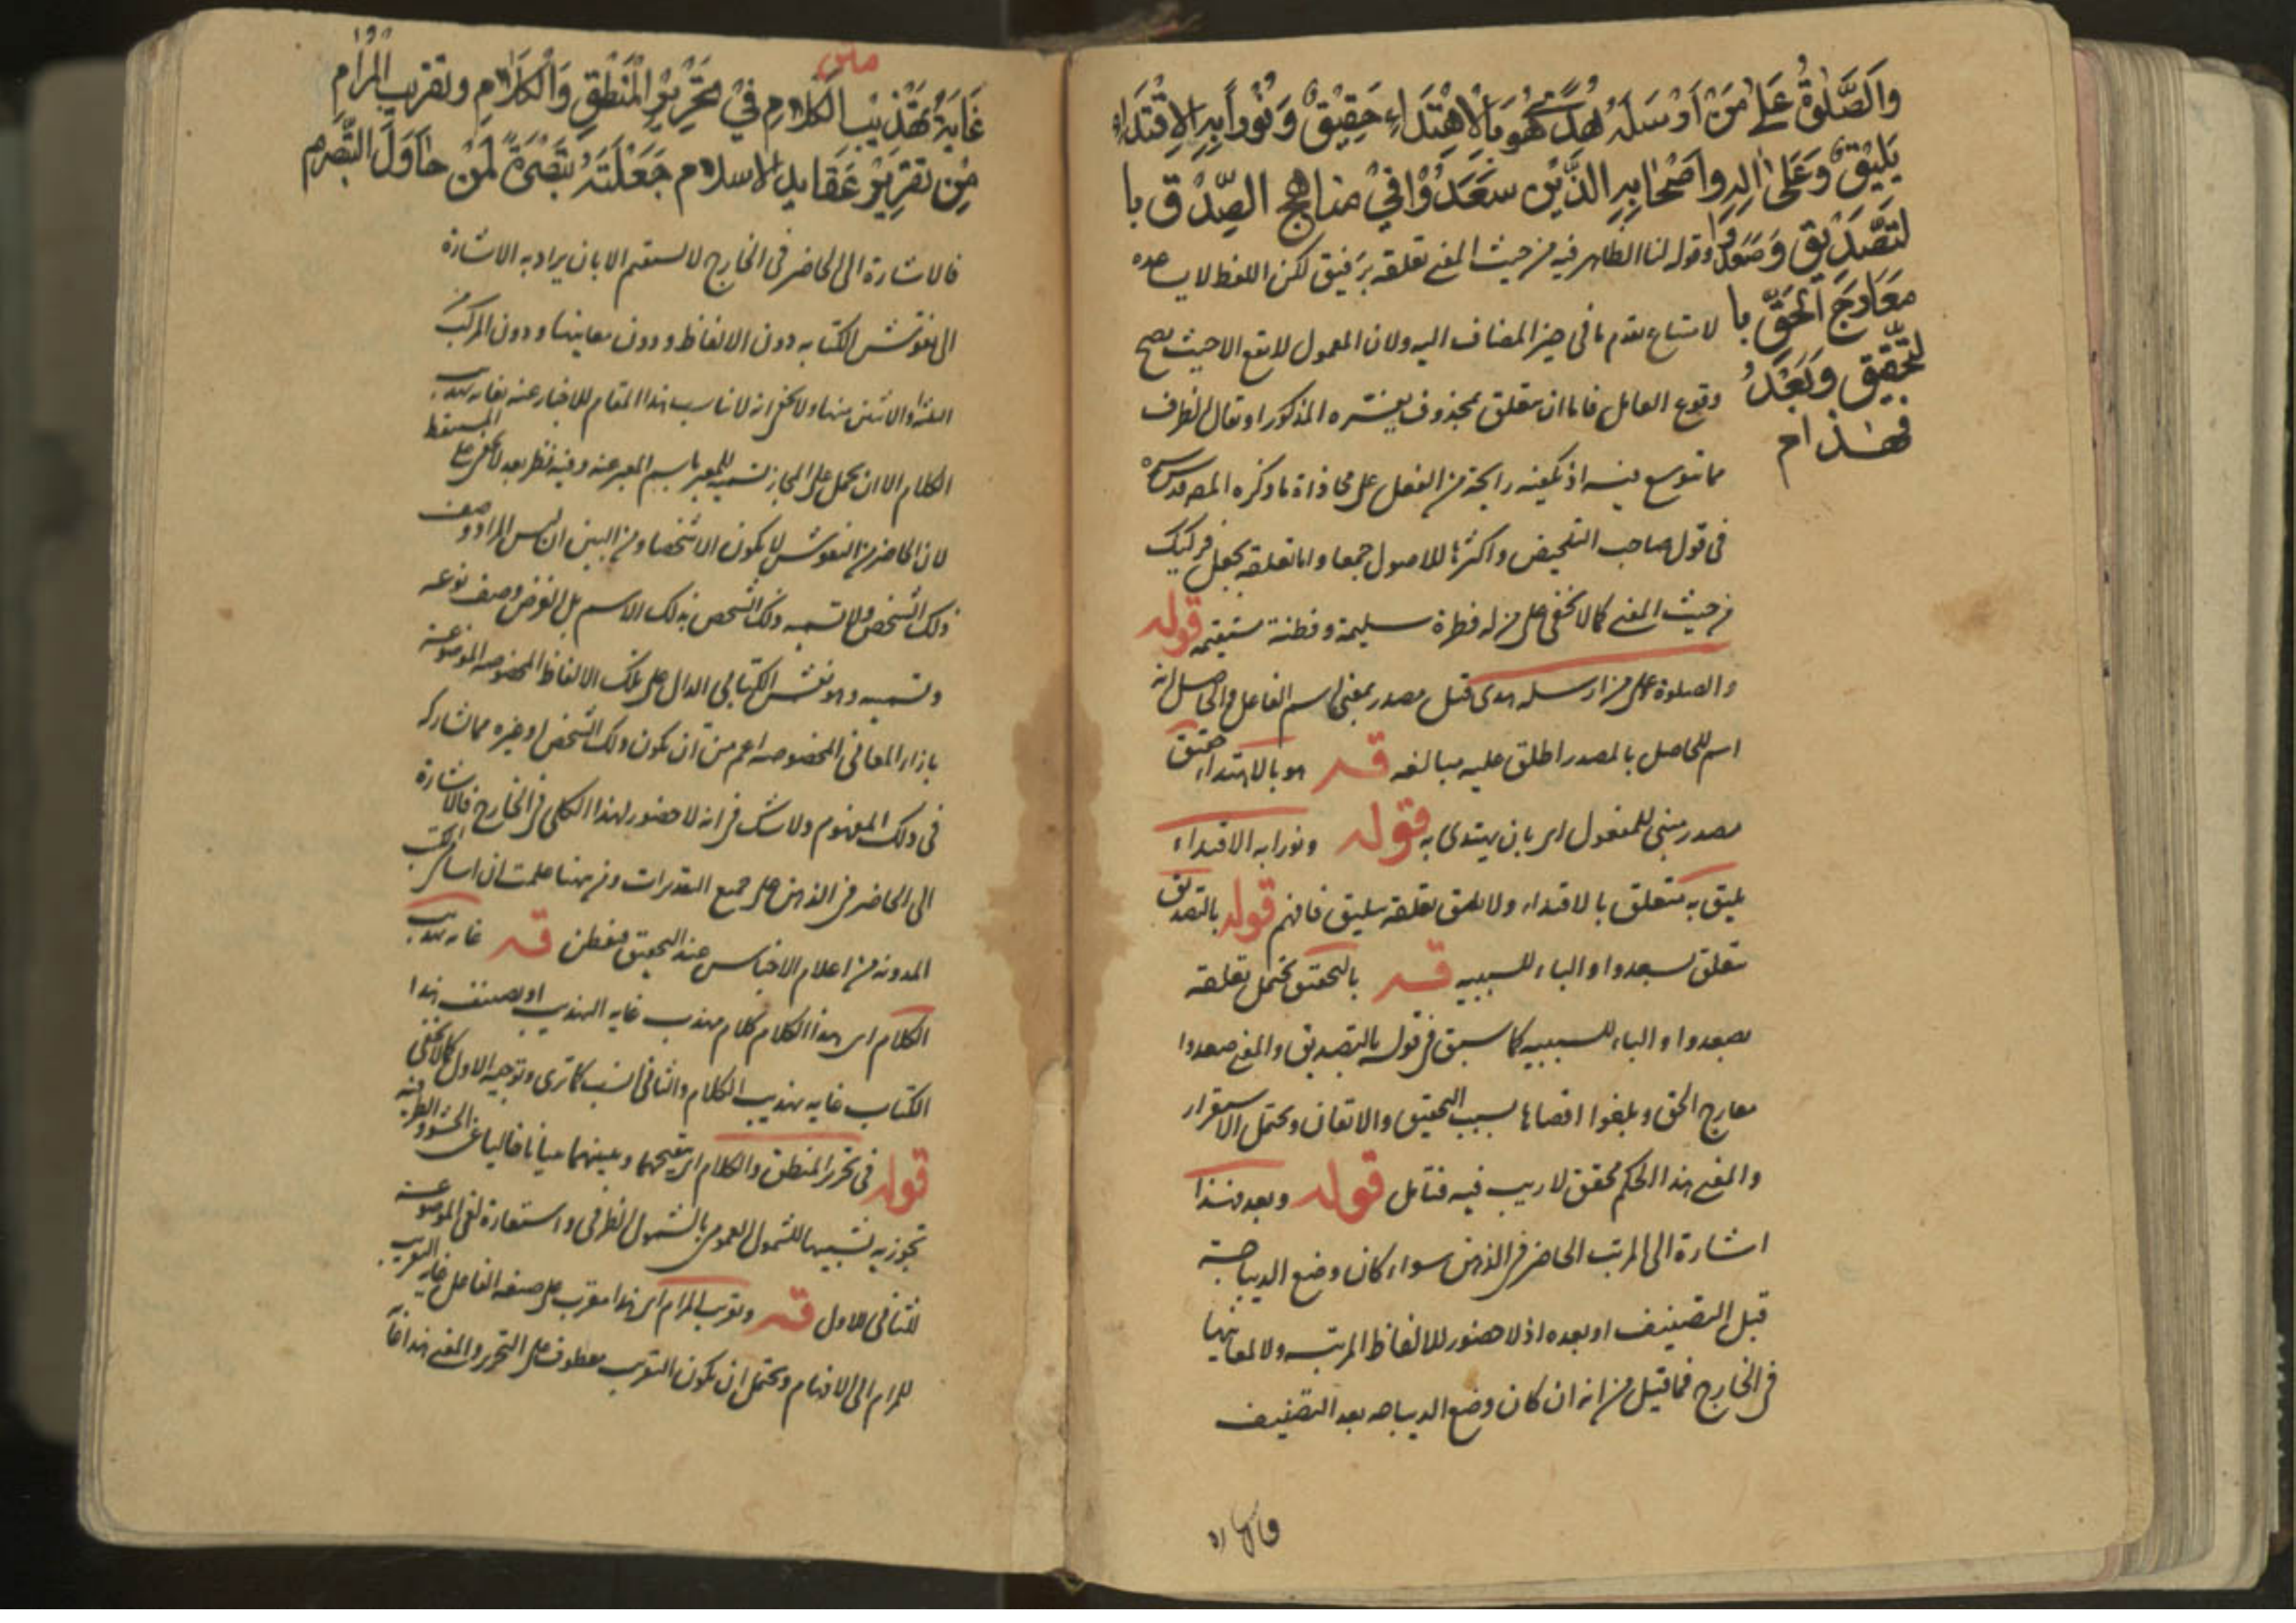 وَالصَّلٰوةُ عَلٰى مَنْ اَرْسَلَهُ هُدًى هُوَ بِالْاِهْتِدَاءِ حَقِيْقٌ وَنُوْراً بِهِ الِاقْتِدَاءُ
يَلِيْقُ وَعَلٰى اٰلِهِ واَصْحَابِهِ الذَّيْنَ سَعَدُوْا فِيْ مناهج الصِّدْقِ با
لتَّصْدِيْقِ وَصَعَدُوْا وقوله لنا الظاهر فيه من حيث المعنى تعلقه برفيق لكن اللفظ لا يساعده
مَعَارِجَ الْحَقِّ با لامتناع تقدم ما في حيز المضاف اليه ولان المعمول لا يقع الا حيث يصح
لتَّحْقِيْقِ وَبَعْدُ وقوع العامل فاما ان يتعلق بمحذوف يفسره المذكور او يقال الظرف
فهٰذا م
مما يتوسع فيه اذ يكفيه رايحة من الفعل على محاذاة ما ذكره المص قدس سره
في قول صاحب التلخيص واكثرها للاصول جمعا واما تعلقه بجعل فركيك
من حيث المعنى كما لا يخفى على من له فطرة سليمة وفطنة مستقيمة قوله
والصلوة على من ارسله هدى قيل مصدر بمعنى اسم الفاعل والحاصل انه
اسم للحاصل بالمصدر اطلق عليه مبالغه قــه هو بالاهتداء حقيق
مصدر مبنى للمفعول اى بان يهتدى به قوله ونورا به الاقتداء
يليق به متعلق بالاقتداء ولا يليق تعلقه بيليق فافهم قوله بالتصديق
متعلق بسعدوا والباء للسببيه قــه بالتحقيق يحتمل تعلقه
بصعدوا والباء للسببيه كما سبق في قوله بالتصديق والمعنى صعدوا
معارج الحق وبلغوا اقصاها بسبب التحقيق والاتقان ويحتمل الاستقرار
والمعنى هذا الحكم محقق لا ريب فيه فتامل قوله وبعد فهذا
اشارة الى المرتب الحاضر في الذهن سواء كان وضع الديباجة
قبل التصنيف او بعده اذ لا حضور للالفاظ المرتبه ولا لمعانيها
في الخارج فما قيل من انه ان كان وضع الديباجه بعد التصنيف
فالاشاره
غَايَةُ تَهْذِيْبِ الْكَلَامِ فِيْ تَحْرِيْرِ الْمَنْطِقِ وَالْكَلَامِ وتقريب الْمَرَامِ
مِنْ تَقْرِيْرِ عَقَايد الاسلام جَعَلْتُهُ تَبْصِرَةً لِمَنْ حَاوَلَ التَّبَصُّرَ م
فالاشارة الى الحاضر في الخارج لا يستقيم الا بان يراد به الاشارة
الى نقوش الكتابه دون الالفاظ ودون معانيها ودون المركب من
الثلثه او الاثنين منها ولا يخفى انه لا يناسب هذا المقام للاخبار عنه بغايه تهذيب
الكلام الا ان يحمل على المجاز تسميه للمعبر باسم المعبر عنه وفيه نظر بعد لا يخفى على المتيقظ
لان الحاضر من النقوش لا يكون الا شخصا ومن البين ان ليس المراد وصف
ذلك الشخص ولا تسميه ذلك الشخص بذلك الاسم بل الغرض وصف نوعه
وتسميه وهو نقش الكتابى الدال على تلك الالفاظ المخصوصه الموضوعة
بازاء المعاني المخصوصه اعم من ان يكون ذلك الشخص او غيره مما يشاركه
في ذلك المفهوم ولا شك في انه لا حضور لهذا الكلى في الخارج فالاشارة
الى الحاضر في الذهن على جميع التقديرات ومن ههنا علمت ان اسامى الكتب
المدونه من اعلام الاجناس عند التحقيق فتفطن قــه غايه تهذيب
الكلام اى هذا الكلام كلام مهذب غايه التهذيب او تصنيف هذا
الكتاب غايه تهذيب الكلام والثاني انسب كما ترى وتوجيه الاول كما لا يخفى
قوله في تحرير المنطق والكلام اى تنقيحهما وتبيينهما بيانا خاليا عن الحشو والظرفيه
تجوزيه تشبيها للشمول العمومى بالشمول الظرفى واستعارة لفى الموضوعة
للثاني للاول قــه وتقريب المرام اى هذا مقرب على صيغه الفاعل غاية التقريب
للمرام الى الافهام ويحتمل ان يكون التقريب معطوف على التحرير والمعنى هذا غاية